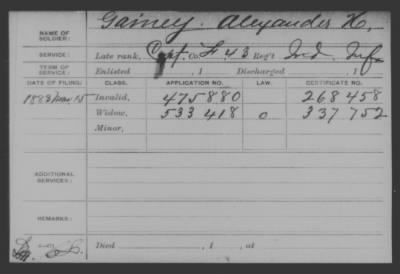 NAME OF SOLDIER: Gainey. Alexander K,
SERVICE: Late rank, Capt. Co. F 43 Reg't Ind. Inf
TERM OF SERVICE: Enlisted , 1 Discharged , 1
DATE OF FILING. CLASS. APPLICATION NO. LAW. CERTIFICATE NO.
1883 Mar 15 Invalid, 475880 268458
Widow, 533418 0 337752
Minor,
ADDITIONAL SERVICES:
REMARKS:
Died , 1 , at